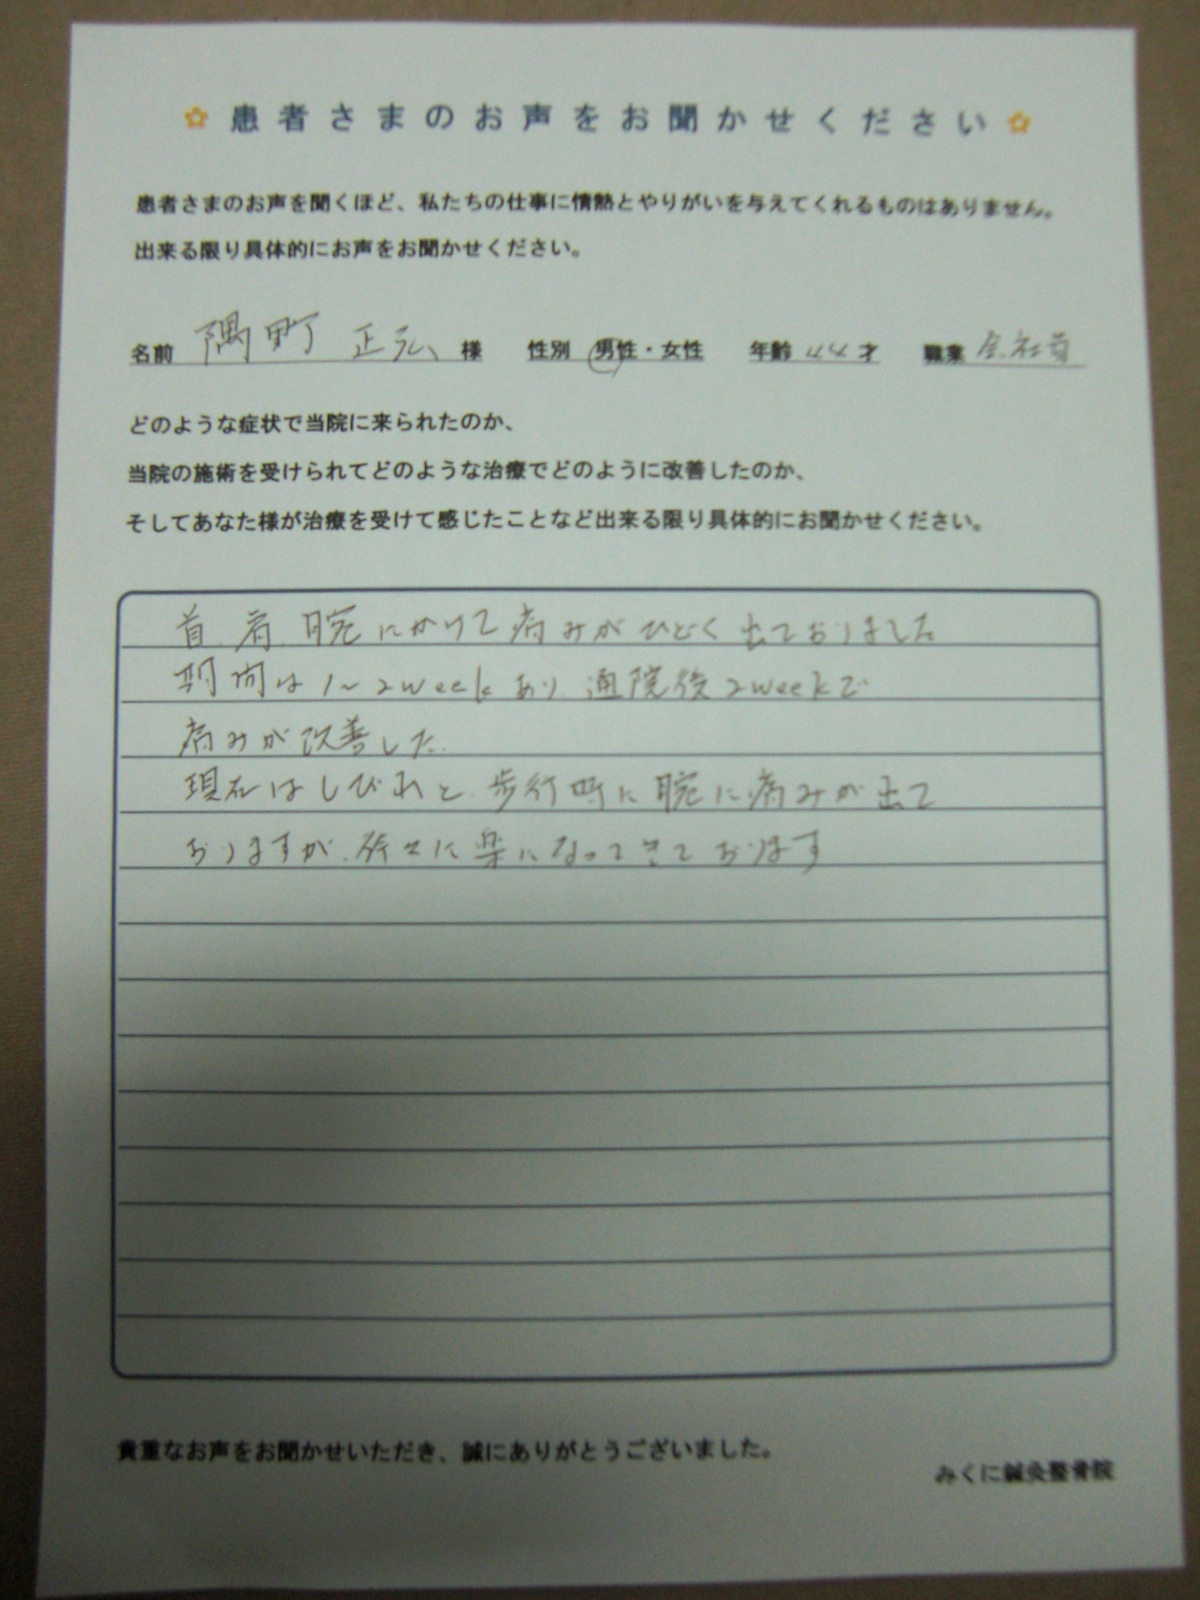 患者さまのお声をお聞かせください
患者さまのお声を聞くほど、私たちの仕事に情熱とやりがいを与えてくれるものはありません。
出来る限り具体的にお声をお聞かせください。
名前 隅町 正弘 様 性別 男性・女性 年齢 44才 職業 会社員
どのような症状で当院に来られたのか、
当院の施術を受けられてどのような治療でどのように改善したのか、
そしてあなた様が治療を受けて感じたことなど出来る限り具体的にお聞かせください。
首、肩、腕にかけて痛みがひどく出ておりました
期間は1~2weekあり、通院後2weekで
痛みが改善した。
現在はしびれと、歩行時に腕に痛みが出て
おりますが、徐々に楽になってきております
貴重なお声をお聞かせいただき、誠にありがとうございました。
みくに鍼灸整骨院